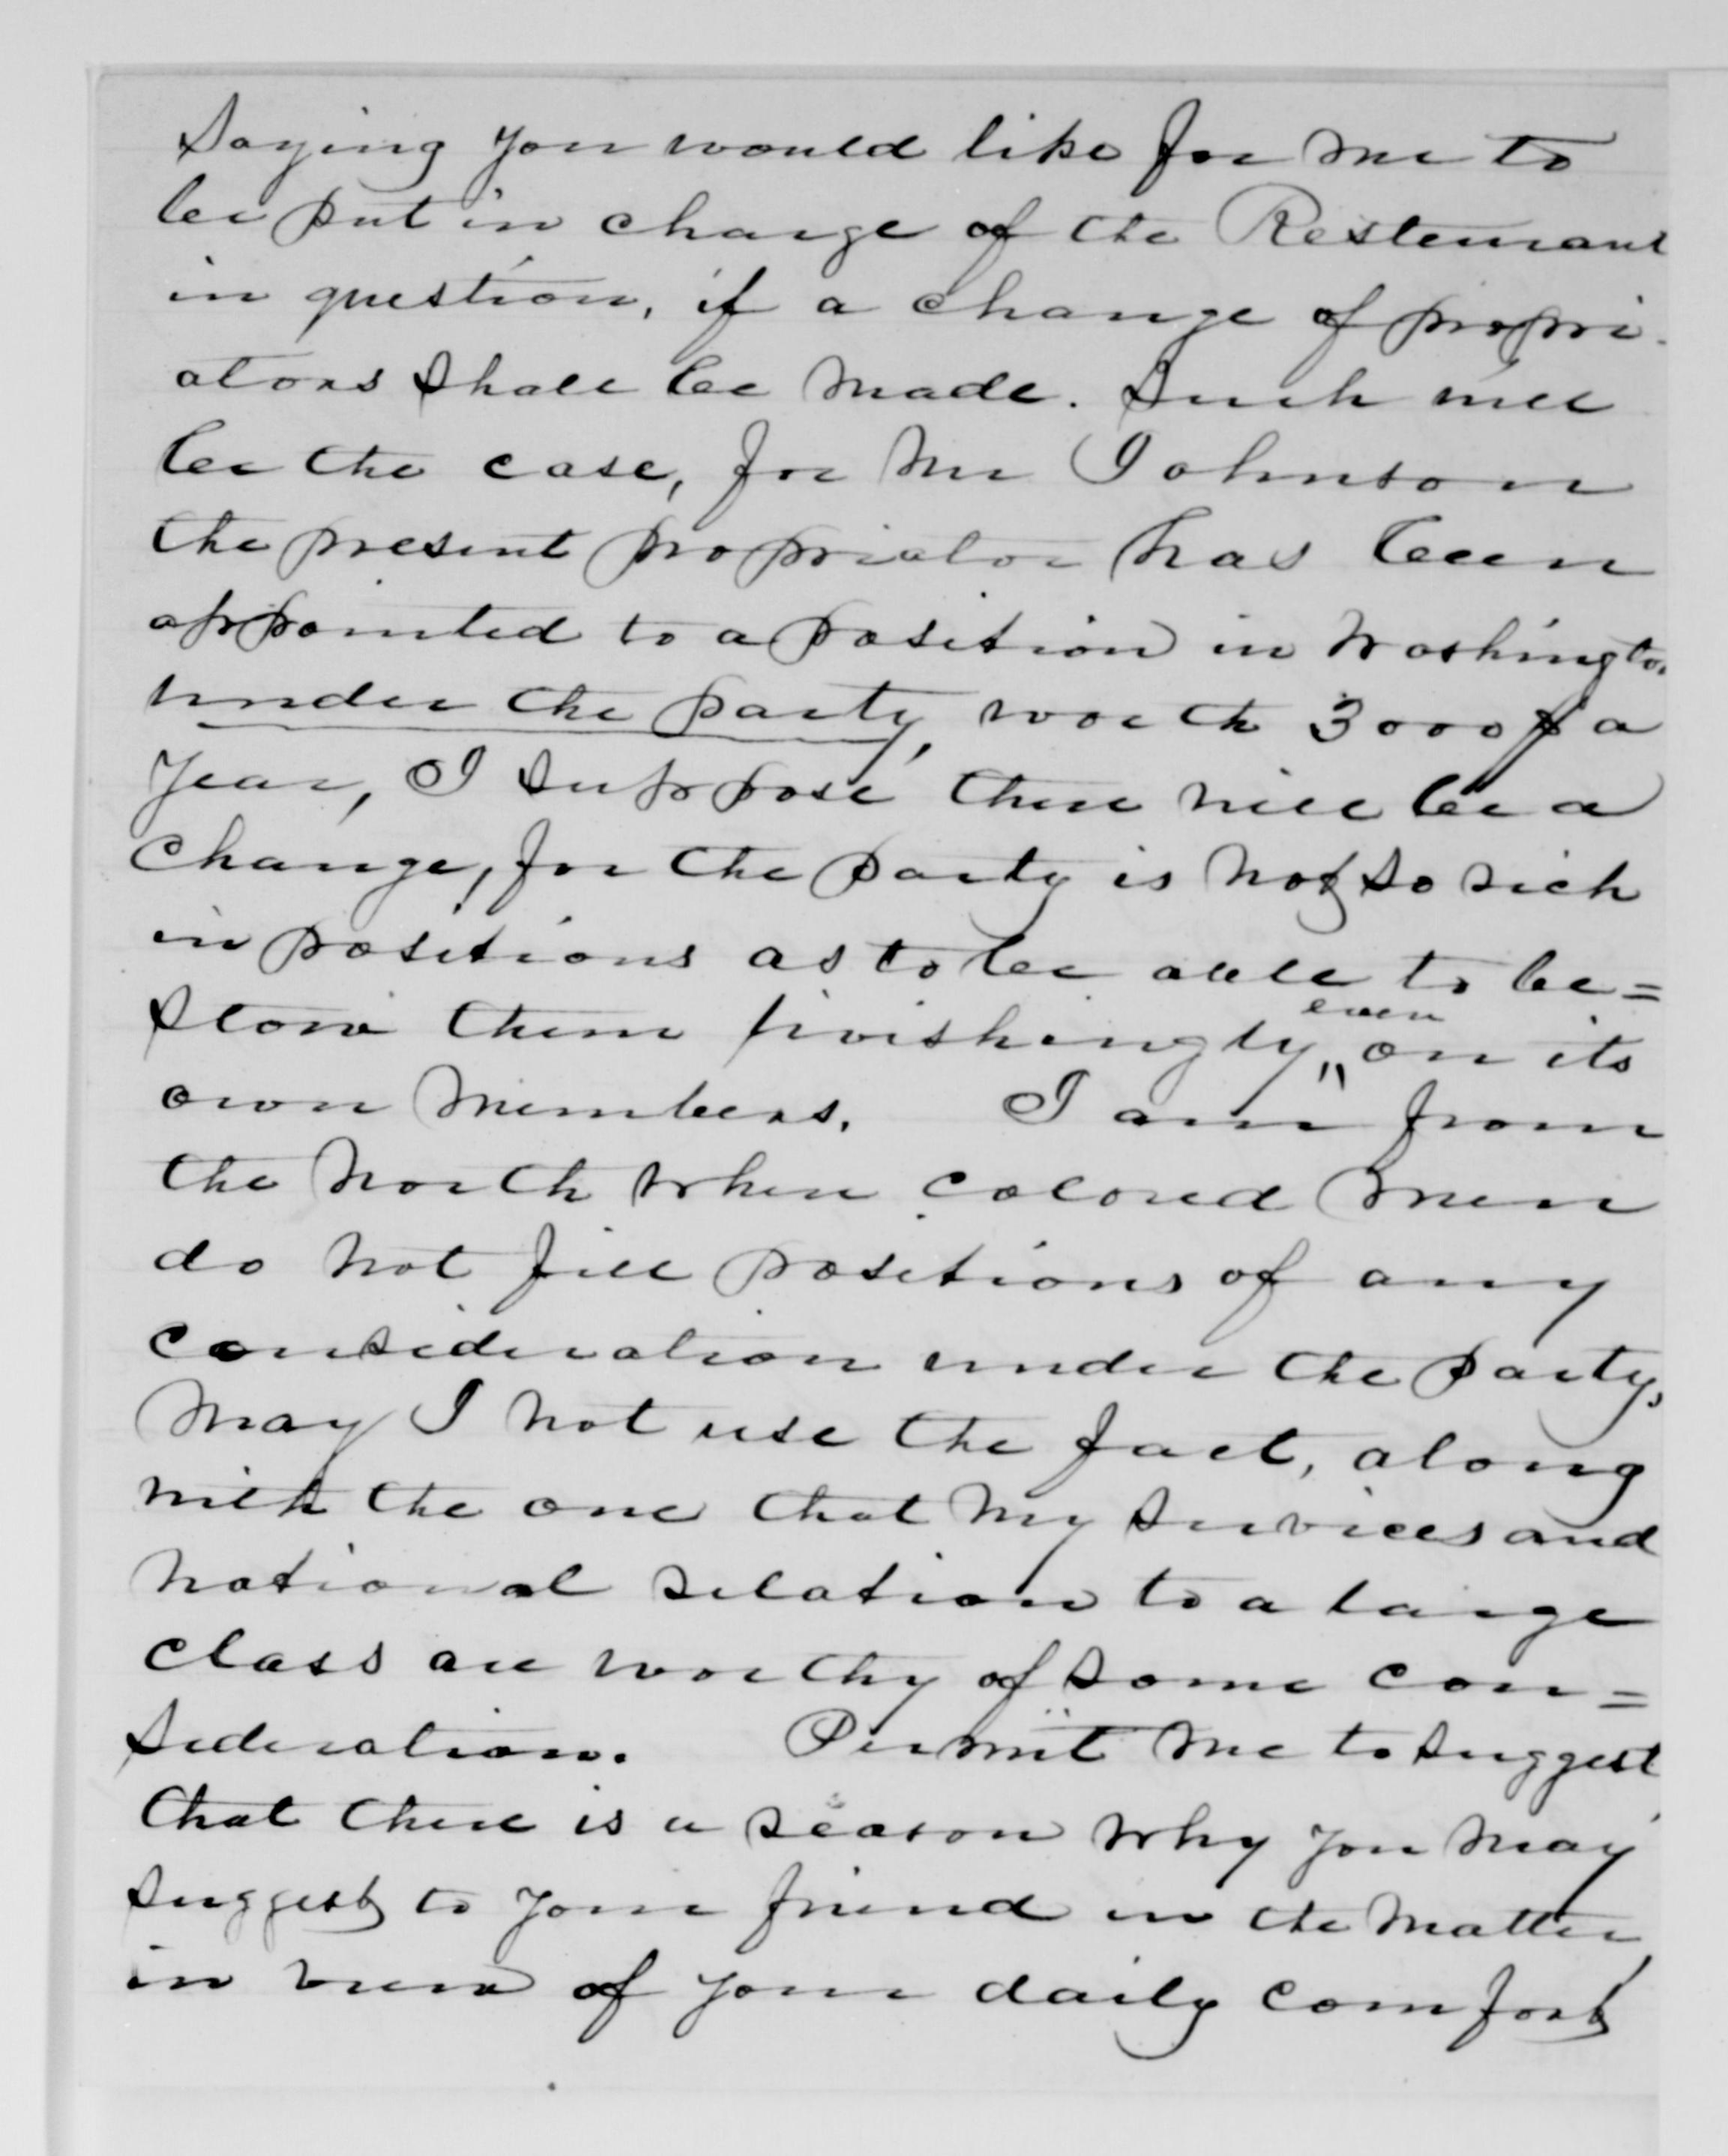 saying you would like for me to
be put in charge of the Resteurant
in question, if a change of propri-
ators shall be made. Such will
be the case, for Mr Johnson
the present propriator has been
appointed to a position in Washington
under the party, worth 3000$ a
year, I suppose there will be a
change, for the party is not so rich
in positions as to be able to be=
stow them
even
on its
own members. I am from
the North where colored men
do not fill positions of any
consideration under the party,
May I not use the fact, along
with the one that my services and
national relation to a large
class are worthy of some con=
sideration. Permit me to suggest
that there is a reason why you may
suggest to your friend in the matter
in view of your daily comfort